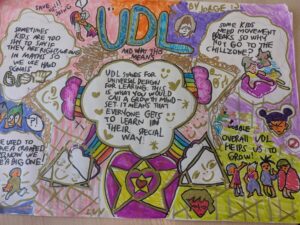 UDL
AND WHY THIS
MEANS
SOMETIMES
KIDS ARE TOO
SHY TO SAY IF
THEY ARE
IN MATHS SO
WE USE HAND
UDL STANDS FOR
UNIVERSAL DESIGN
FOR LEARNING. THIS
IS WHAT YOU WOULD
CALL A GROWTH MIND-
SET. IT MEANS THAT
EVERYONE GETS
TO LEARN IN
THEIR SPECIAL
WAY.
SOME KIDS
NEED MOVEMENT
BREAKS, SO WHY
NOT GO TO THE
CHILLZONE?
USED TO
BE A
NOW WE
A BIG ONE!
OVERALL UDL
HELPS US TO
GROW!